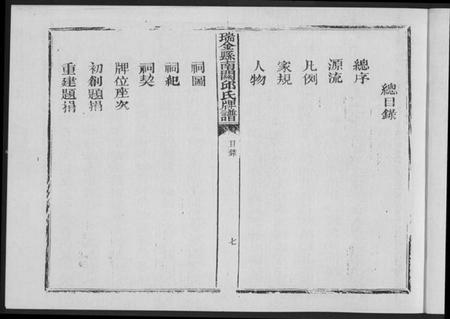 總目錄
總序
源流
凡例
家規
人物
瑞金縣南關邱氏牌譜
目錄
七
祠圖
祠紀
祠契
牌位座次
初創題捐
重建題捐